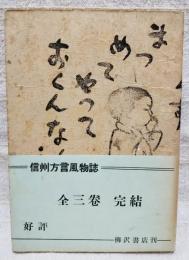 まつ
めて
やって
おくんな
信州方言風物誌
全三巻 完結
好評
柳沢書店刊